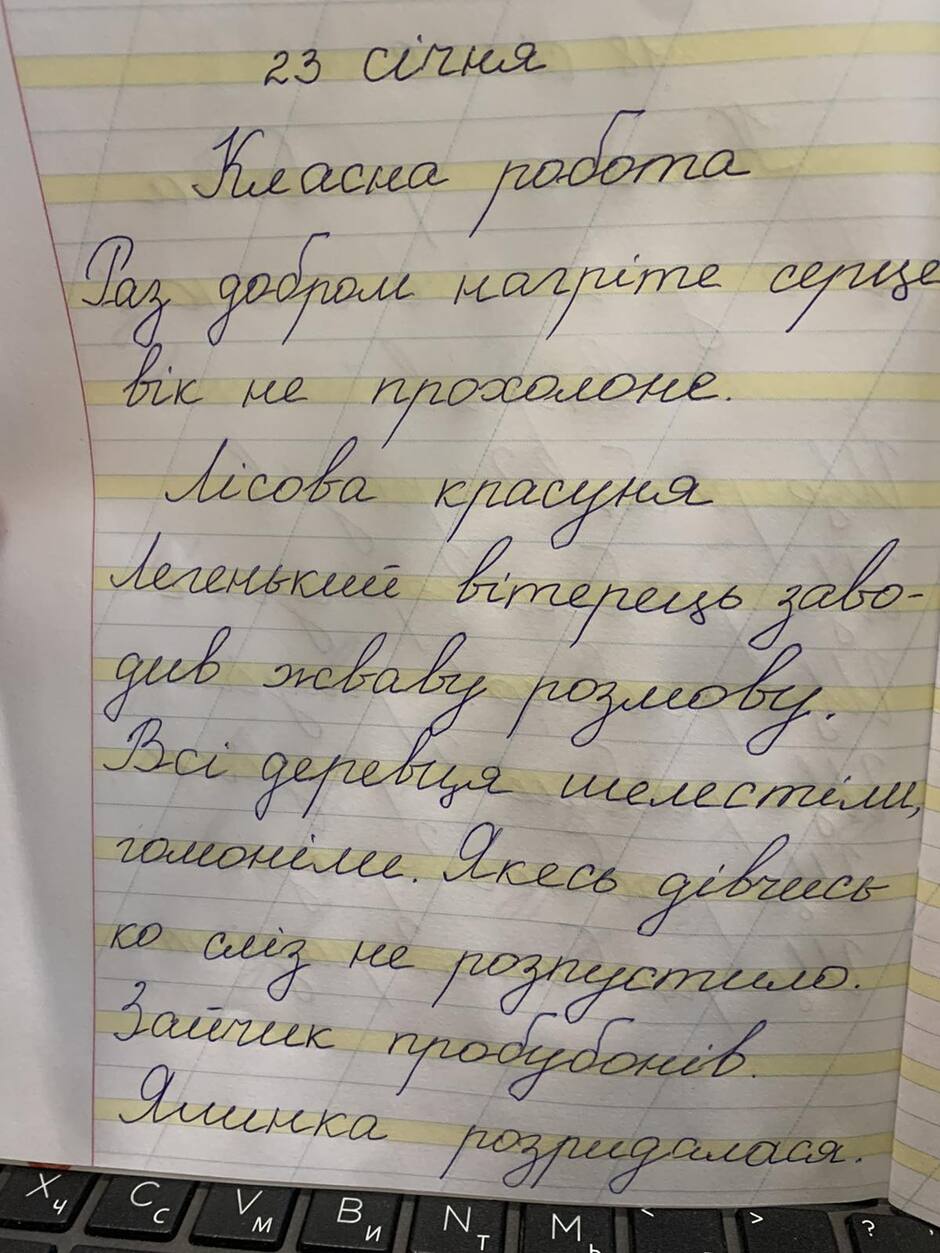 23 січня
Класна робота
Раз добром нагріте серце
вік не прохолоне.
Лісова красуня
Легенький вітерець заво-
див жваву розмову.
Всі деревця шелестіли,
гомоніли. Якесь дівчись
ко сліз не розпустило.
Зайчик пробубонів.
Ялинка розридалася.
Х Ч С С V М В И N Т М Ь < > ? ,